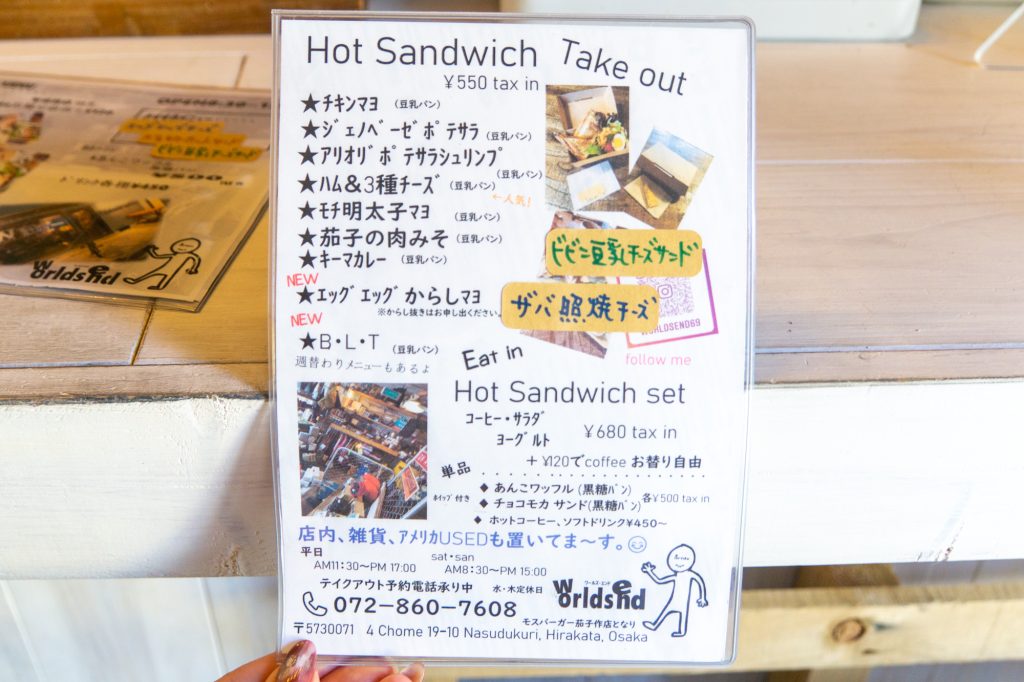 Hot Sandwich Take out
¥550 tax in
★チキンマヨ (豆乳パン)
★ジェノベーゼポテサラ (豆乳パン)
★アリオリポテサラシュリンプ (豆乳パン)
★ハム&3種チーズ (豆乳パン)
←人気!
★モチ明太子マヨ (豆乳パン)
★茄子の肉みそ (豆乳パン)
★キーマカレー (豆乳パン)
NEW
★エッグエッグからしマヨ
※からし抜きはお申し出ください。
NEW
★B・L・T (豆乳パン)
週替わりメニューもあるよ
ビビン豆乳チーズサンド
サバ照焼チーズ
WORLDSEND69
follow me
Eat in
Hot Sandwich set
コーヒー・サラダ
ヨーグルト ¥680 tax in
+¥120でcoffee お替り自由
単品
ホイップ付き
◆ あんこワッフル (黒糖パン)
◆ チョコモカ サンド(黒糖パン)
各¥500 tax in
◆ ホットコーヒー、ソフトドリンク¥450~
店内、雑貨、アメリカUSEDも置いてま〜す。
平日 sat・san
AM11:30~PM 17:00 AM8:30~PM 15:00
テイクアウト予約電話承り中 水・木定休日
072-860-7608
ワールズ・エンド
worldsend
モスバーガー茄子作店となり
〒5730071 4 Chome 19-10 Nasudukuri, Hirakata, Osaka
worldsend